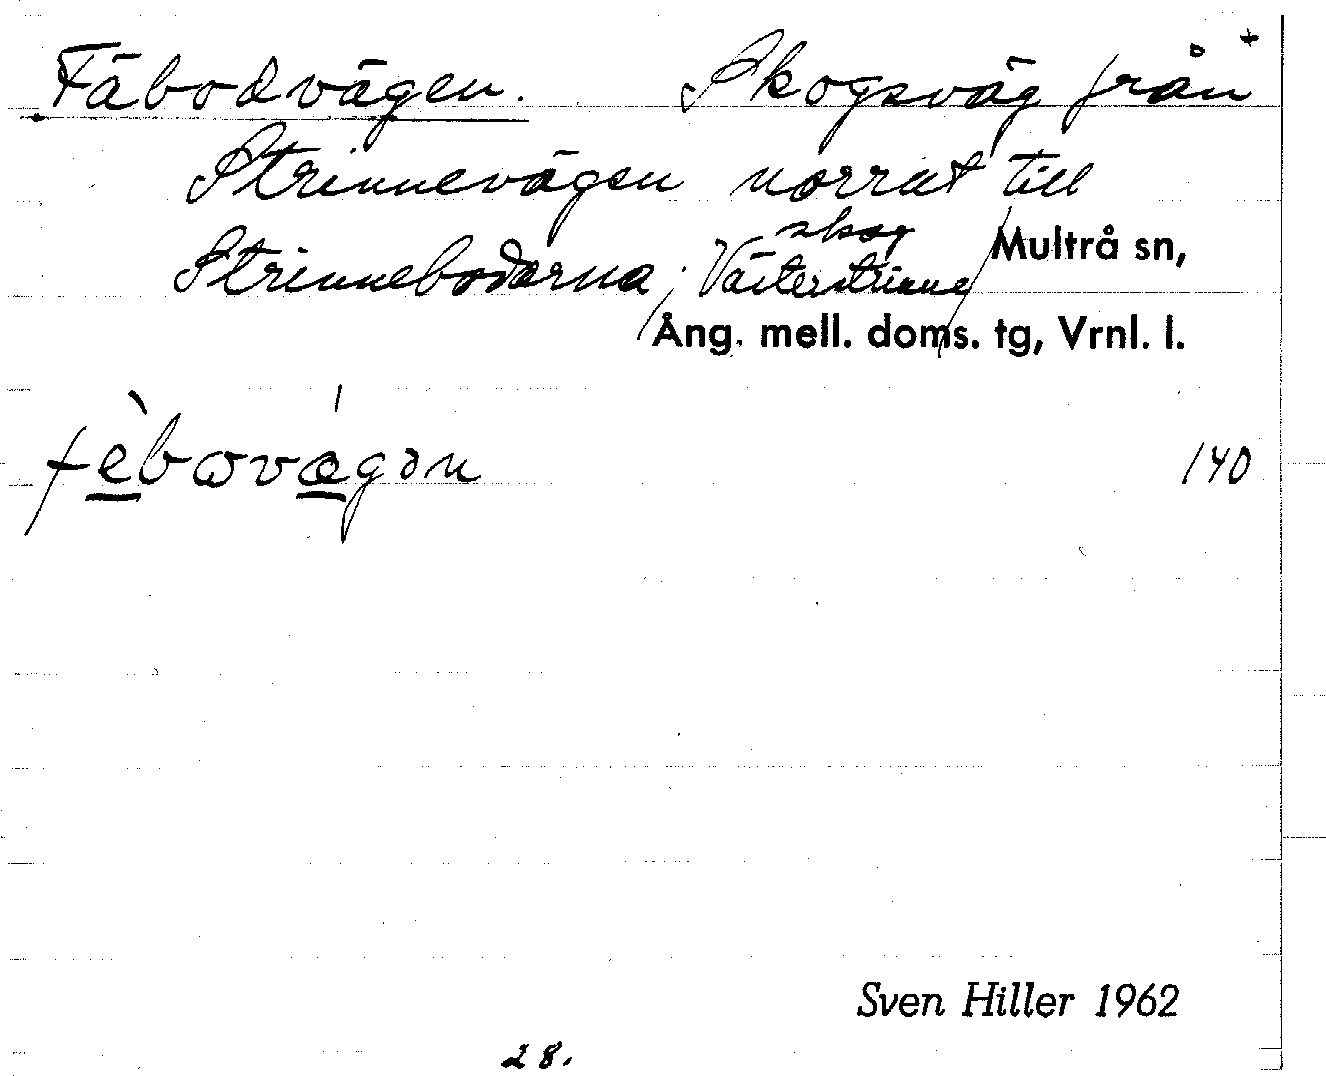 Fäbodvägen. Skogsväg från +
Strinnevägen norrut till
Strinnebodarna; Västerstrinne skog / Multrå sn,
/ Ång. mell. doms. tg, Vrnl. l.
fèbωvǽgən 140
Sven Hiller 1962
28.